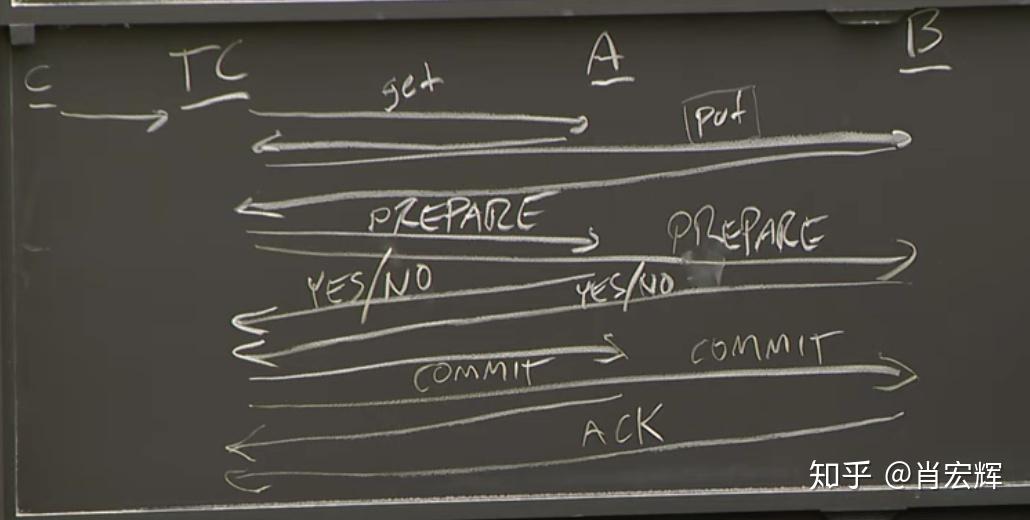 C TC A B
get
put
PREPARE PREPARE
YES/NO YES/NO
COMMIT COMMIT
ACK
知乎 @肖宏辉